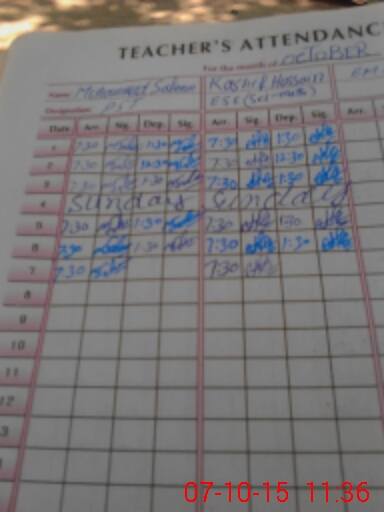 TEACHER'S ATTENDANC
For the month of OCTOBER
Name Mohammad Saleem Kashif Hussain
Designation PST ESE (Sci-math)
Date Arr. Sig. Dep. Sig. Arr. Sig. Dep. Sig. Arr.
1 7:30 1:30 7:30 1:30
2 7:30 12:30 7:30 12:30
3 7:30 1:30 7:30 1:30
4 Sunday Sunday
5 7:30 1:30 7:30 1:30
6 7:30 1:30 7:30 1:30
7 7:30 7:30
8
9
10
11
12
3
07-10-15 11:36